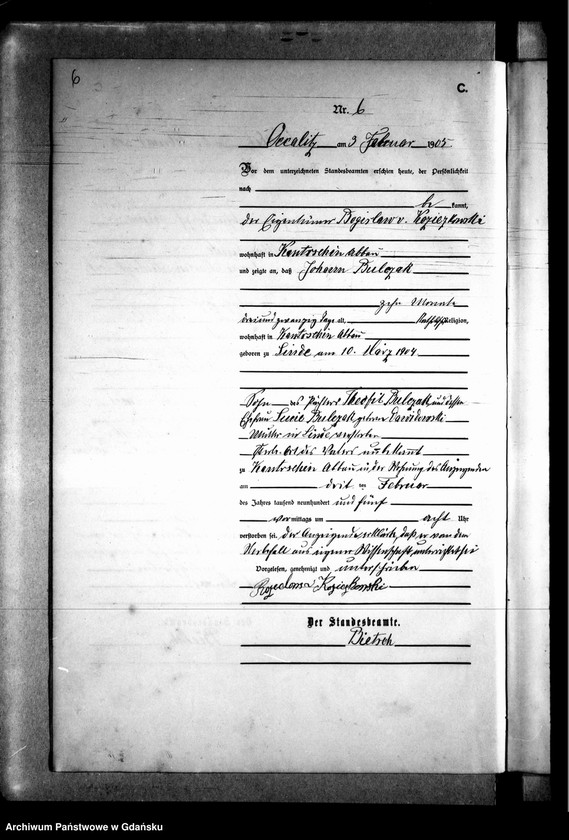 6
C.
Nr. 6
Occalitz am 3 Februar 1905
Vor dem unterzeichneten Standesbeamten erschien heute, der Persönlichkeit
nach
be kannt,
der Eigentümer Bogislaw v. Kozieczkowski
wohnhaft in Kantrschin Abbau
und zeigte an, daß Johann Bulczak
zehn Monate
drei und zwanzig Tage alt, katholischer Religion,
wohnhaft in Kantrschin Abbau
geboren zu Linde am 10. März 1904
Sohn des Theofil Bulczak und dessen
Ehefrau Lucie Bulczak geboren
Mutter in Linde verstorben
Ort des Vaters unbekannt
zu Kantrschin Abbau in der Wohnung des Anzeigenden
am drit ten Februar
des Jahres tausend neunhundert und fünf
vor mittags um acht Uhr
verstorben sei. Der Anzeigende erklärte, daß er von dem
Sterbefall aus eigener Wissenschaft unterrichtet sei
Vorgelesen, genehmigt und unterschrieben
Der Standesbeamte.
Dietsch
Archiwum Państwowe w Gdańsku